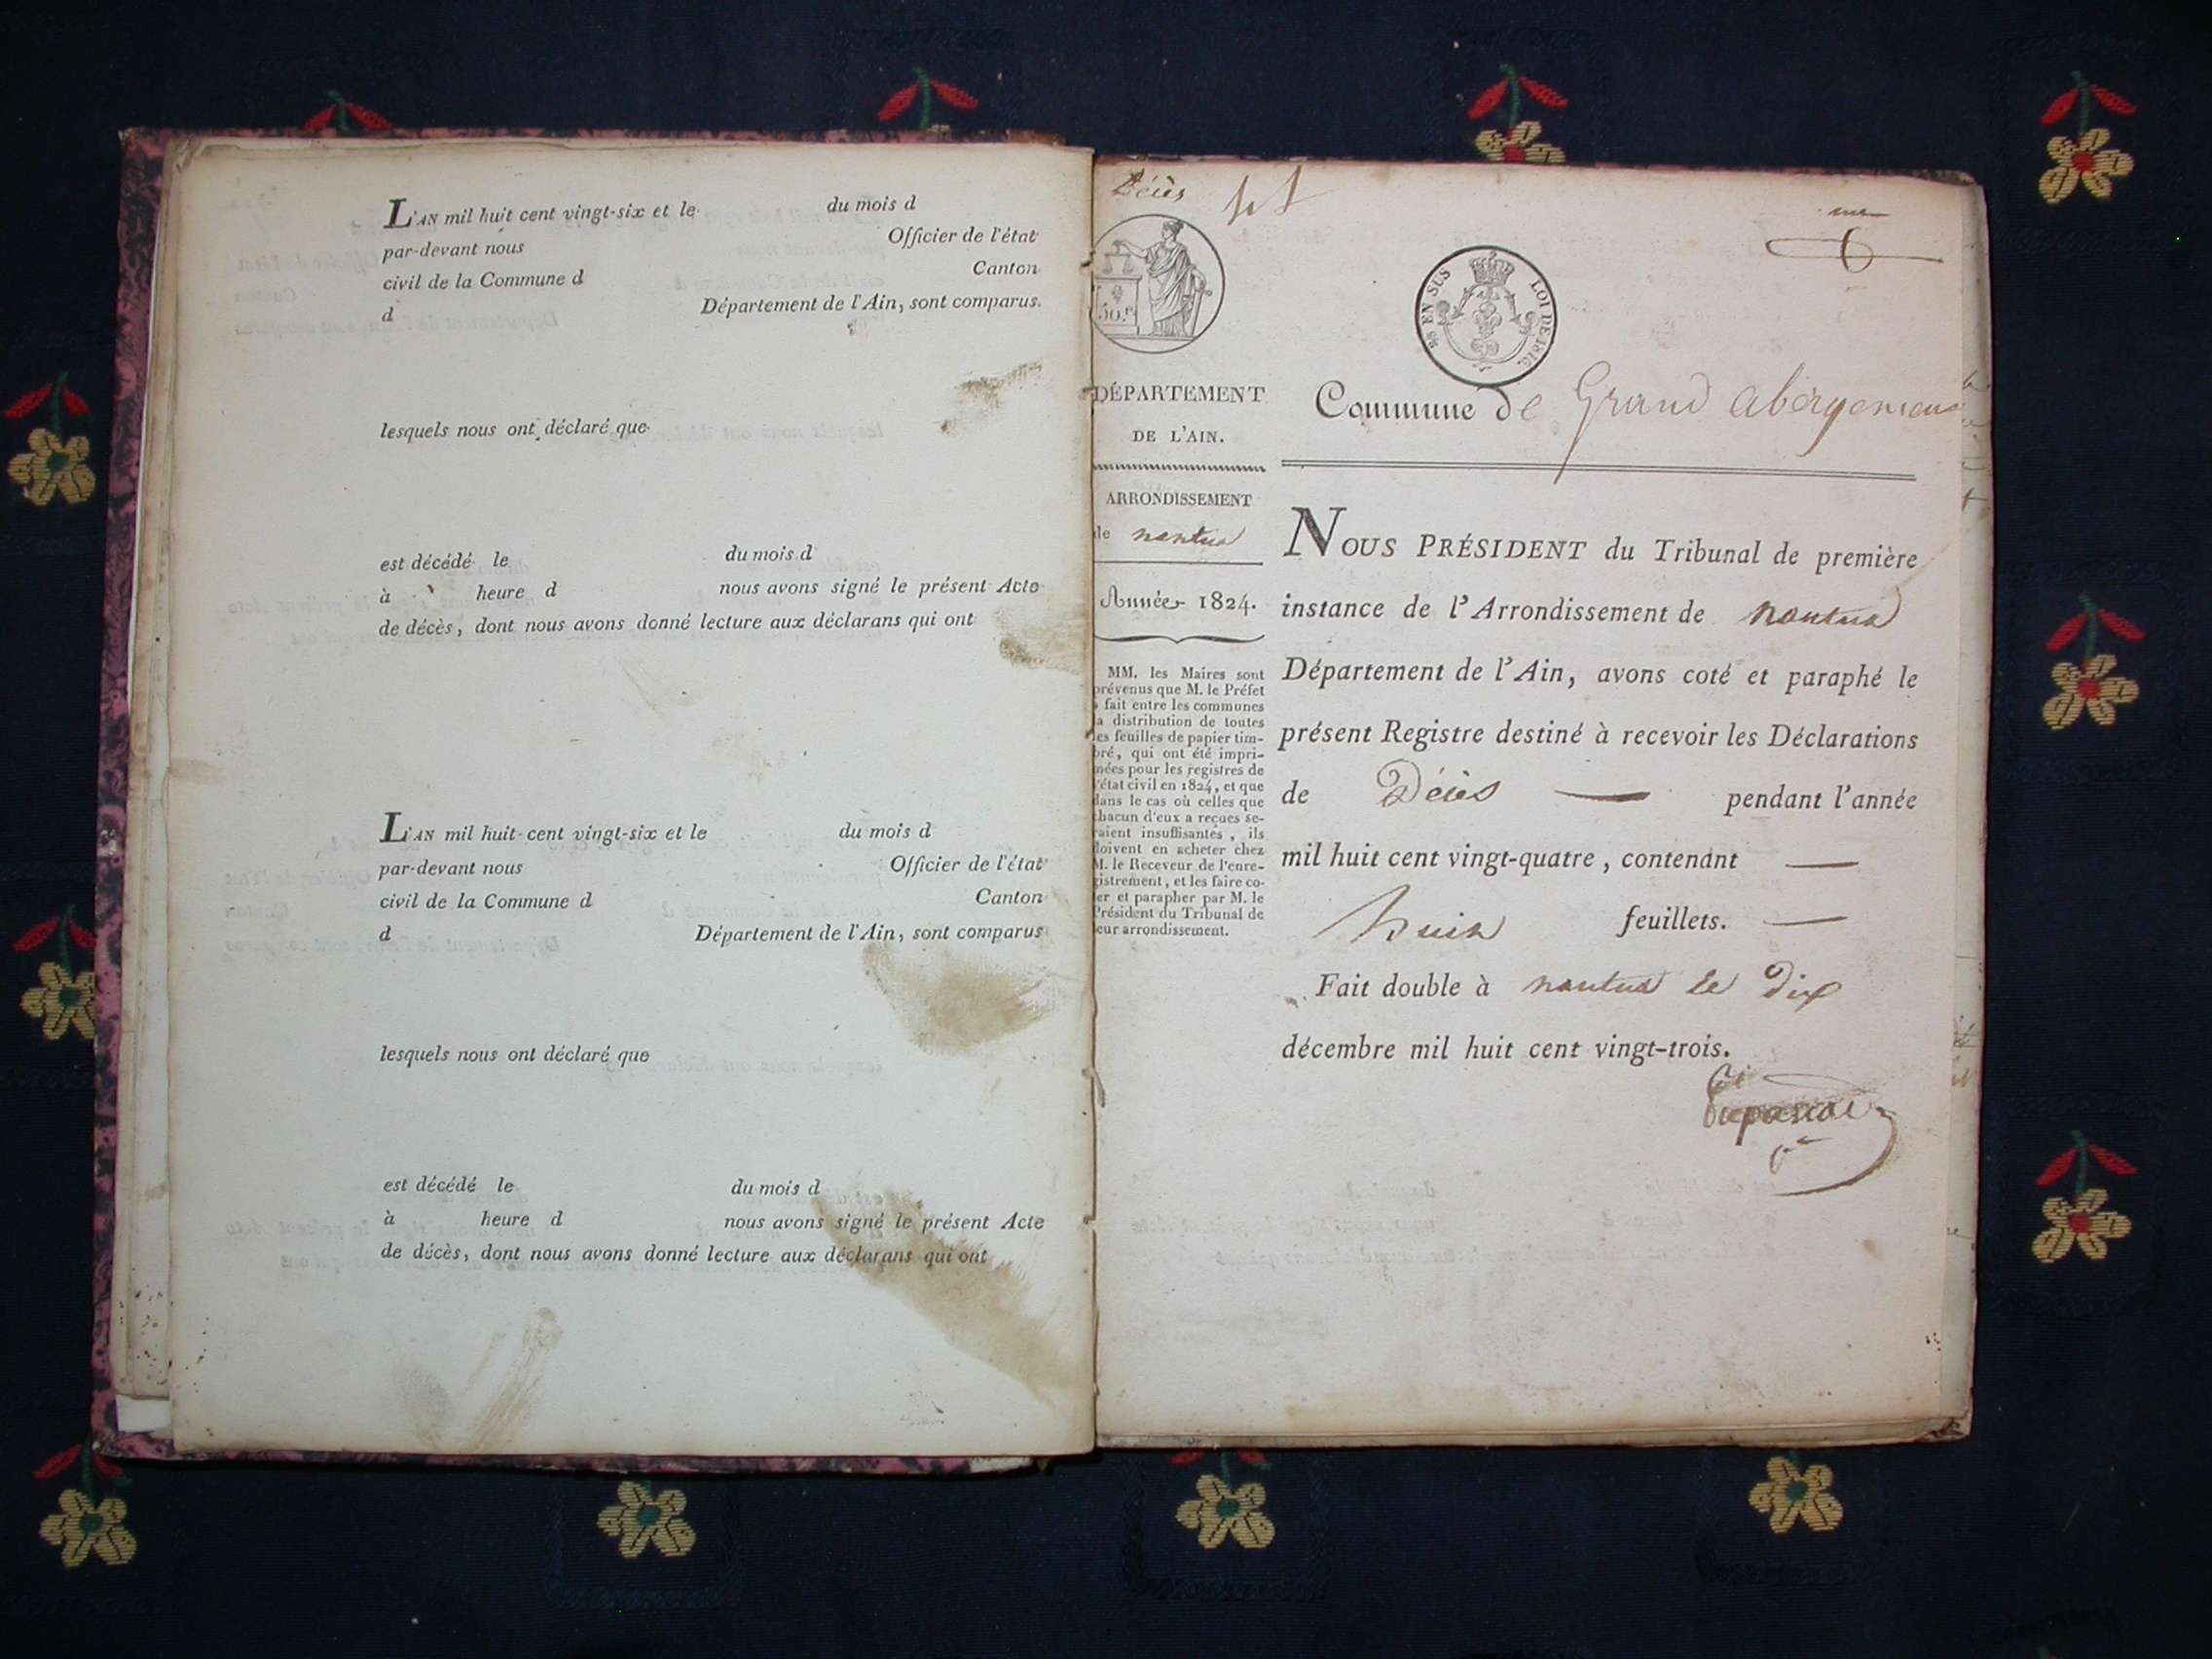 L'AN mil huit cent vingt-six et le du mois d
par-devant nous Officier de l'état
civil de la Commune d Canton
d Département de l'Ain, sont comparus
lesquels nous ont déclaré que
est décédé le du mois d
à heure d nous avons signé le présent Acte
de décès, dont nous avons donné lecture aux déclarans qui ont
L'AN mil huit cent vingt-six et le du mois d
par-devant nous Officier de l'état
civil de la Commune d Canton
d Département de l'Ain, sont comparus
lesquels nous ont déclaré que
est décédé le du mois d
à heure d nous avons signé le présent Acte
de décès, dont nous avons donné lecture aux déclarans qui ont
Décès
50.c
EN SUS LOI DE 1816.
DÉPARTEMENT
DE L'AIN.
ARRONDISSEMENT
de nantua
Année 1824.
MM. les Maires sont
prévenus que M. le Préfet
a fait entre les communes
la distribution de toutes
les feuilles de papier tim-
bré, qui ont été impri-
mées pour les registres de
l'état civil en 1824, et que
dans le cas où celles que
chacun d'eux a reçues se-
raient insuffisantes, ils
doivent en acheter chez
M. le Receveur de l'enre-
gistrement, et les faire co-
ter et parapher par M. le
Président du Tribunal de
leur arrondissement.
Commune de Grand abergement
NOUS PRÉSIDENT du Tribunal de première
instance de l'Arrondissement de nantua
Département de l'Ain, avons coté et paraphé le
présent Registre destiné à recevoir les Déclarations
de Décès pendant l'année
mil huit cent vingt-quatre, contenant
huit feuillets.
Fait double à nantua le dix
décembre mil huit cent vingt-trois.